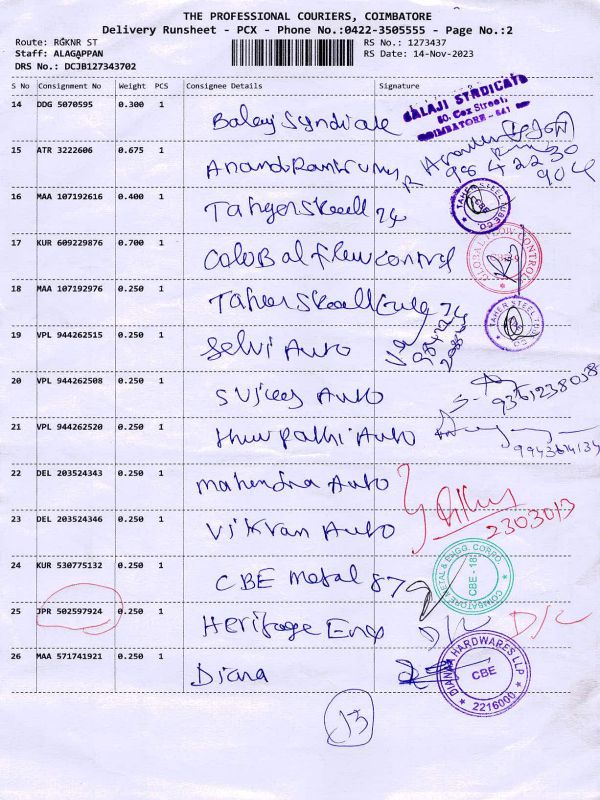 THE PROFESSIONAL COURIERS, COIMBATORE
Delivery Runsheet - PCX - Phone No.:0422-3505555 - Page No.:2
Route: RGKNR ST RS No.: 1273437
Staff: ALAGAPPAN RS Date: 14-Nov-2023
DRS No.: DCJB127343702
S No Consignment No Weight PCS Consignee Details Signature
14 DDG 5070595 0.300 1 Balaji Syndicate
BALAJI SYNDICATE
80, Cox Street,
COIMBATORE - 641
15 ATR 3222606 0.675 1
98422 30
904
16 MAA 107192616 0.400 1 74
TAHER STEEL TUBE CO. CBE
17 KUR 609229876 0.700 1 Global flow control
GLOBAL CONTROL
18 MAA 107192976 0.250 1 74
TAHER STEEL TUBE CO.
19 VPL 944262515 0.250 1 Selvi Auto
20 VPL 944262508 0.250 1 Auto
21 VPL 944262520 0.250 1 Auto
22 DEL 203524343 0.250 1 Mahendra Auto
2303013
23 DEL 203524346 0.250 1 Vikran Auto
24 KUR 530775132 0.250 1 CBE Metal 87
COIMBATORE METAL & ENGG. CORPO. CBE - 18
25 JPR 502597924 0.250 1 Heritage Eng D/C D/C
26 MAA 571741921 0.250 1 Diana
DIANA HARDWARES LLP CBE 2216000
13